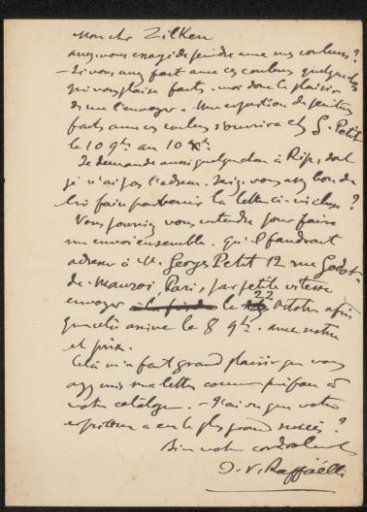 Mon cher Zilken
avez-vous essayé de peindre avec mes couleurs ?
– Si vous avez fait avec ces couleurs quelque chose
qui vous plaise faites-moi donc le plaisir
de me l'envoyer. – Une exposition de peintures
faites avec ces couleurs s'ouvrira chez G. Petit
le 10 9bre au 10 Xbre.
Je demande aussi quelque chose à Rips, dont
je n'ai pas l'adresse. Seriez-vous assez bon de
lui faire parvenir la lettre ci-incluse ?
Vous pourriez vous entendre pour faire
un envoi ensemble. qu'il faudrait
adresser à M. Georges Petit 12 rue Godot-
de-Mauroi, Paris, par petite vitesse
envoyer le 22 Octobre afin
que cela arrive le 8 9bre. avec notice
et prix.
Cela m'a fait grand plaisir que vous
ayez mis ma lettre comme préface à
votre catalogue. – J'ai su que votre
exposition a eu le plus grand succès ?
Bien votre cordialement
J. F. Raffaëlli